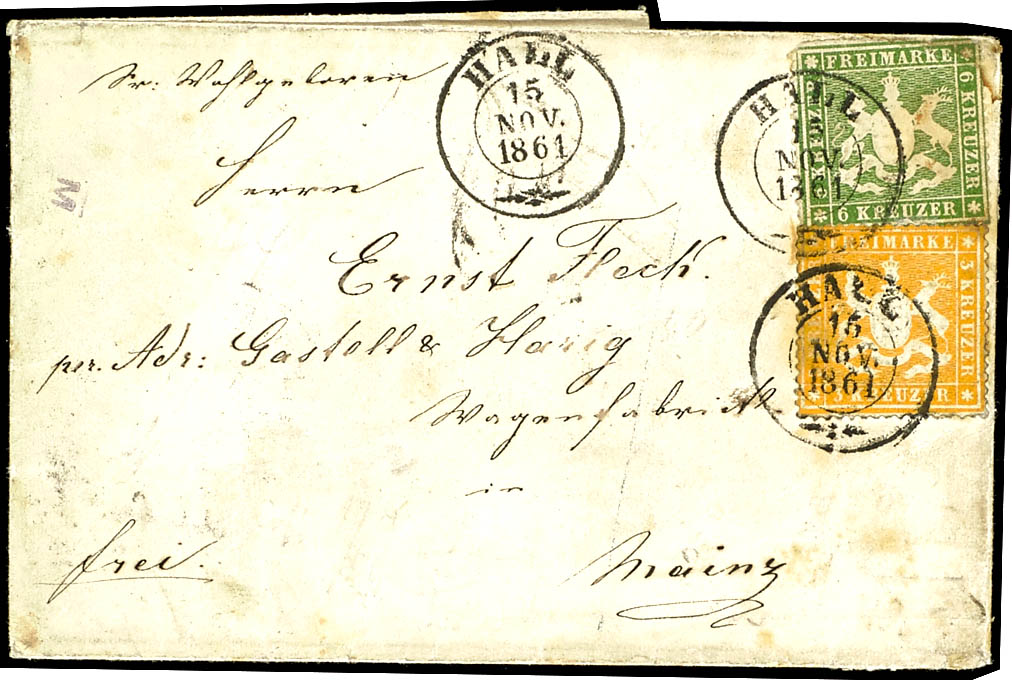 Sr: Wohlgeboren
Herrn
Ernst Fleck.
pr. Adr: Gastell & Harig
Wagenfabrick
in
Mainz
frei.
HALL
15
NOV.
1861
HALL
15
NOV.
1861
HALL
15
NOV.
1861
FREIMARKE
6 KREUZER
6 KREUZER
FREIMARKE
3 KREUZER
3 KREUZER